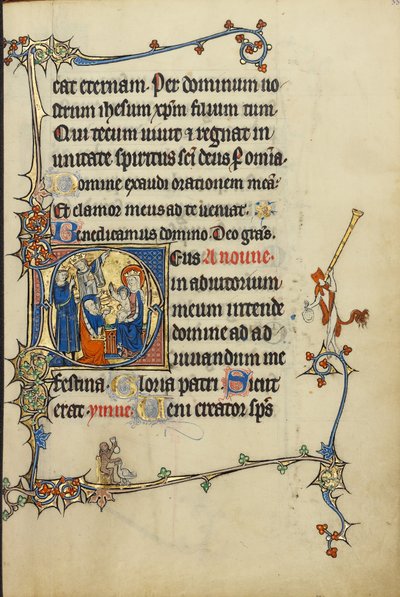 cat eternam. Per dominum no
strum ihesum xpm filium tuum
Qui tecum uiuit ⁊ regnat in
unitate spiritus sci deus P omia.
Domine exaudi orationem mea:
Et clamor meus ad te ueniat.
Benedicamus domino. Deo gras.
Deus A noune.
in adiutorium
meum intende
domine ad ad
iuuandum me
festina. Gloria patri. Sicut
erat. ymne. Ueni creator sps